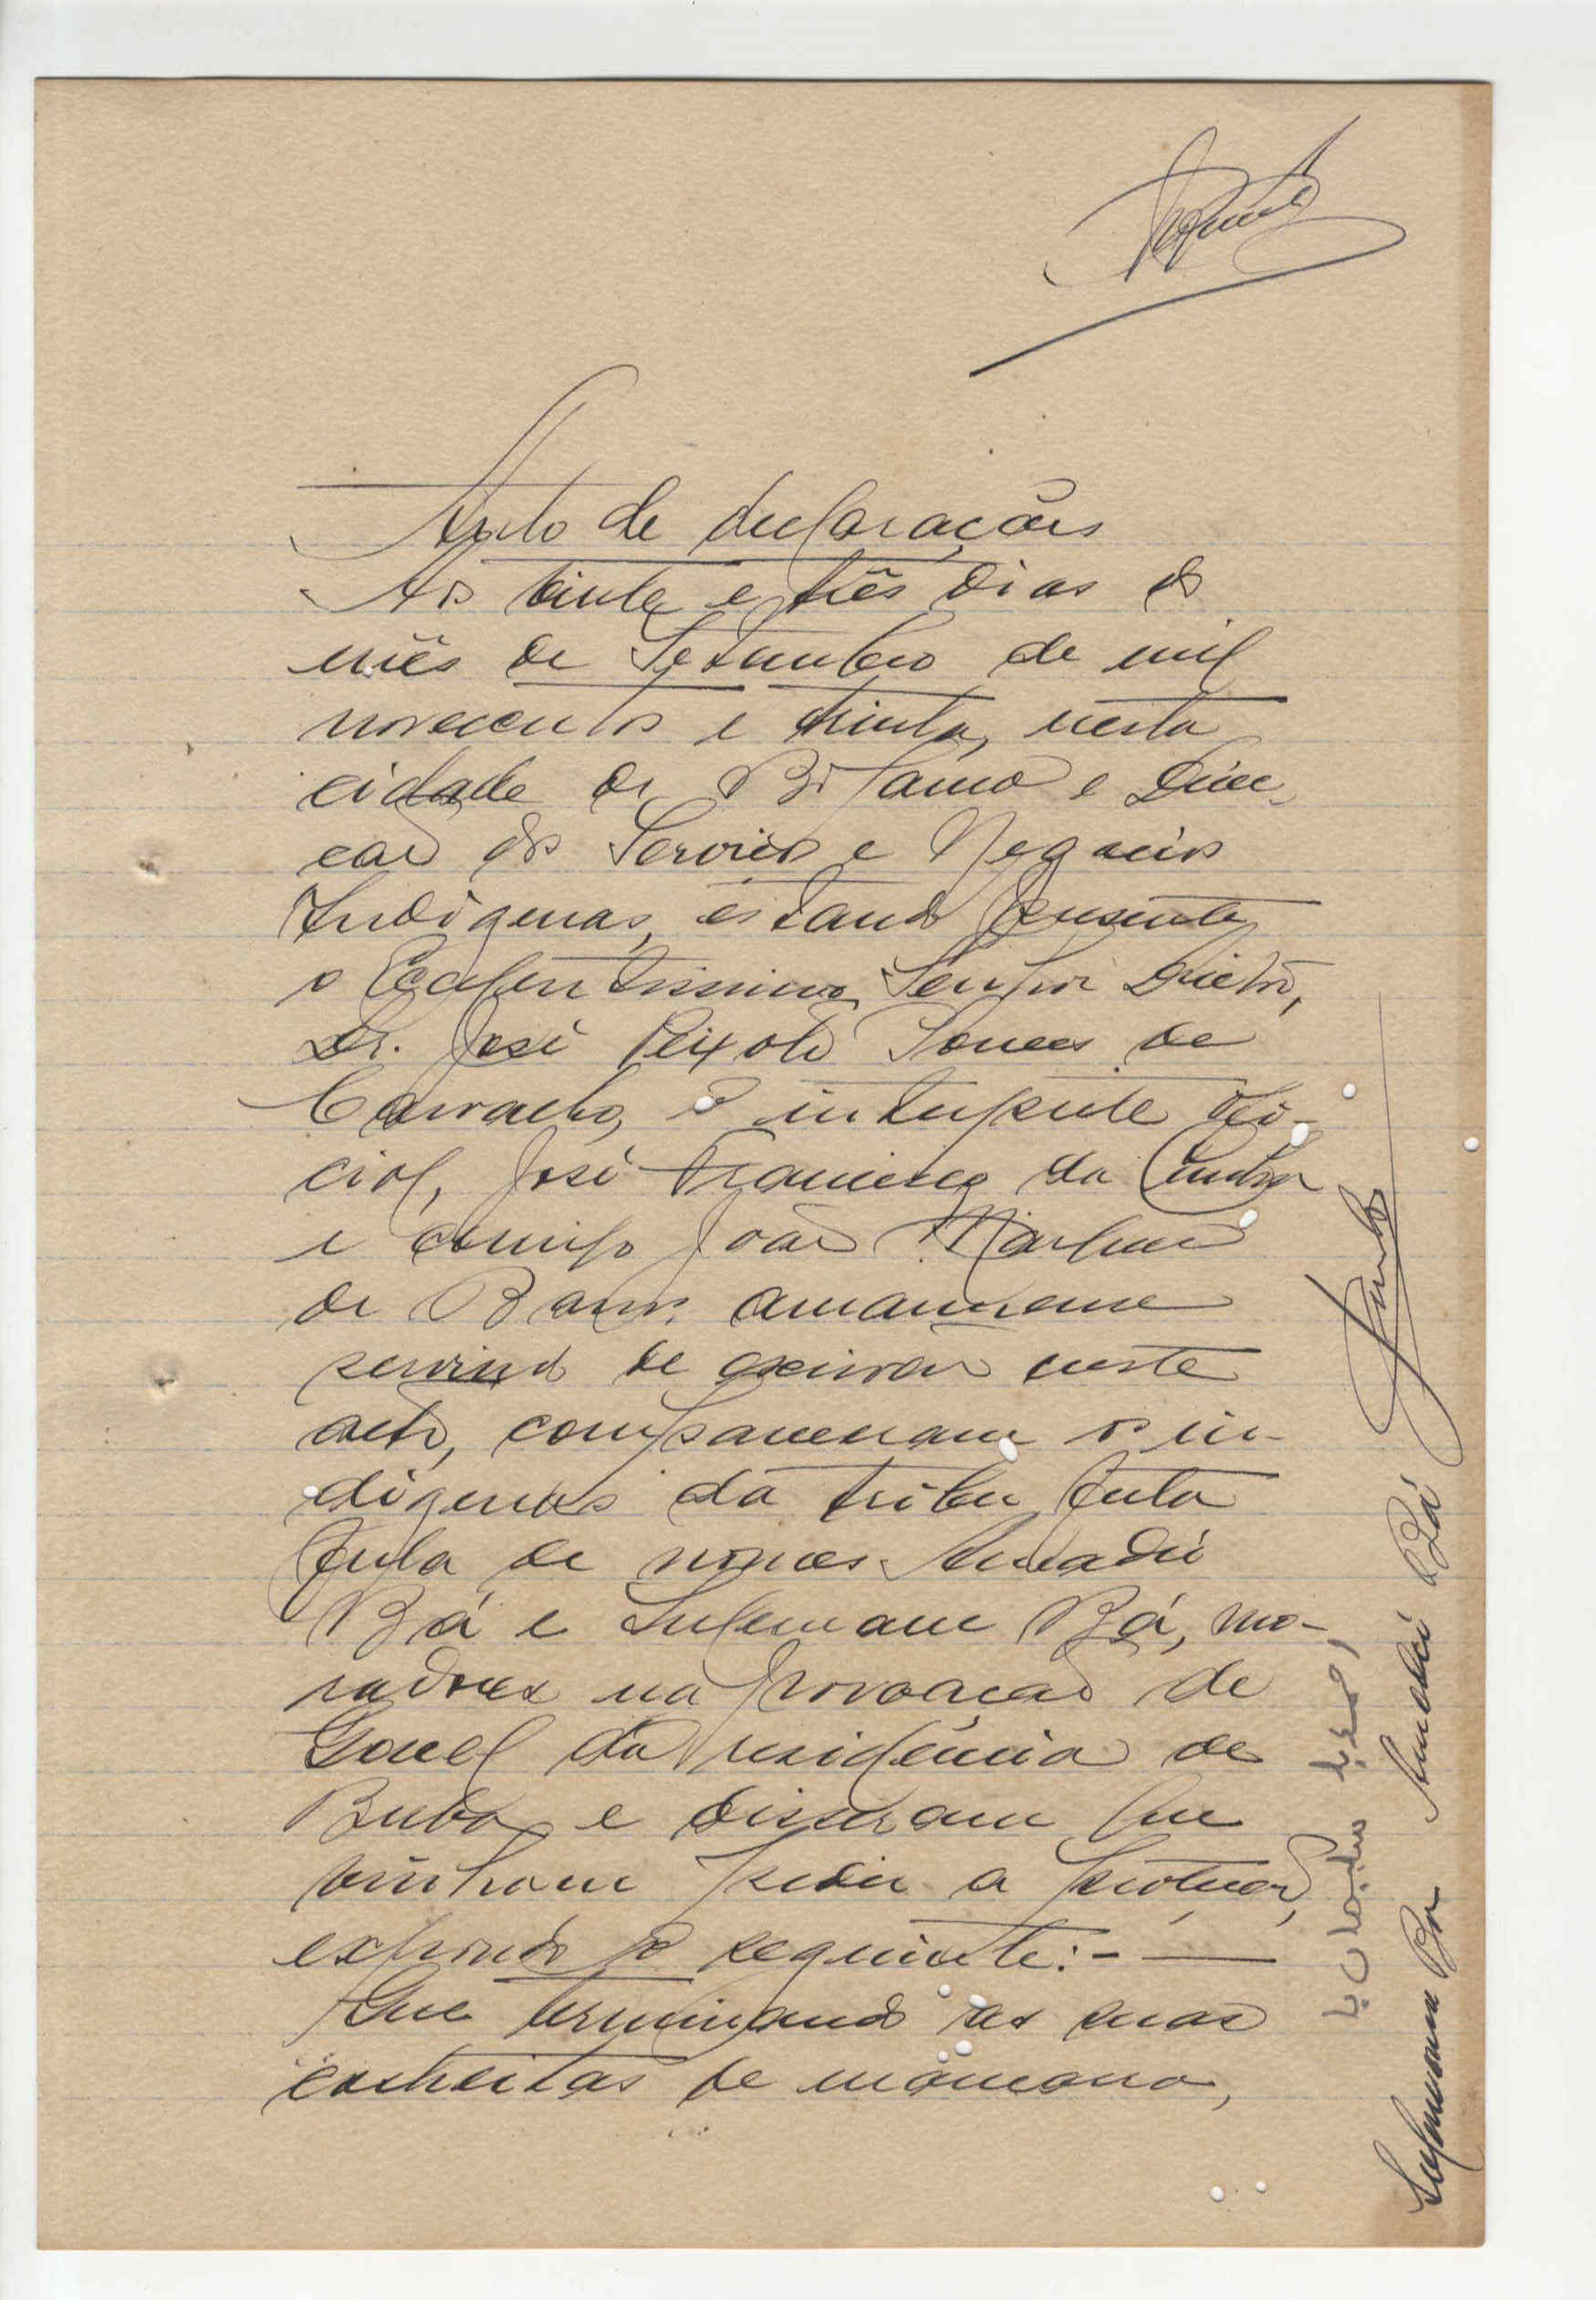 Auto de declarações
Aos vinte e três dias do
mês de Setembro de mil
novecentos e trinta, nesta
cidade de Bolama e Direc-
ção dos Serviços e Negocios
Indigenas, estando presente
o Excelentissimo Senhor Director,
Dr. José Peixoto Ponces de
Carvalho, o interprete ofi-
cial, José Francisco da Cunha
e comigo João Martins
de Barros amanuense
servindo de escrivão neste
acto, compareceram os in-
digenas da tribu
Fula de nomes Amadú
Bá e Sulemane Bá, mo-
radores na povoação de
da residência de
Buba e disseram que
vinham pedir a protecção,
expondo o seguinte:-
Que terminando as suas
colheitas de mancarra,
Amadú Bá
Sulemane Ba